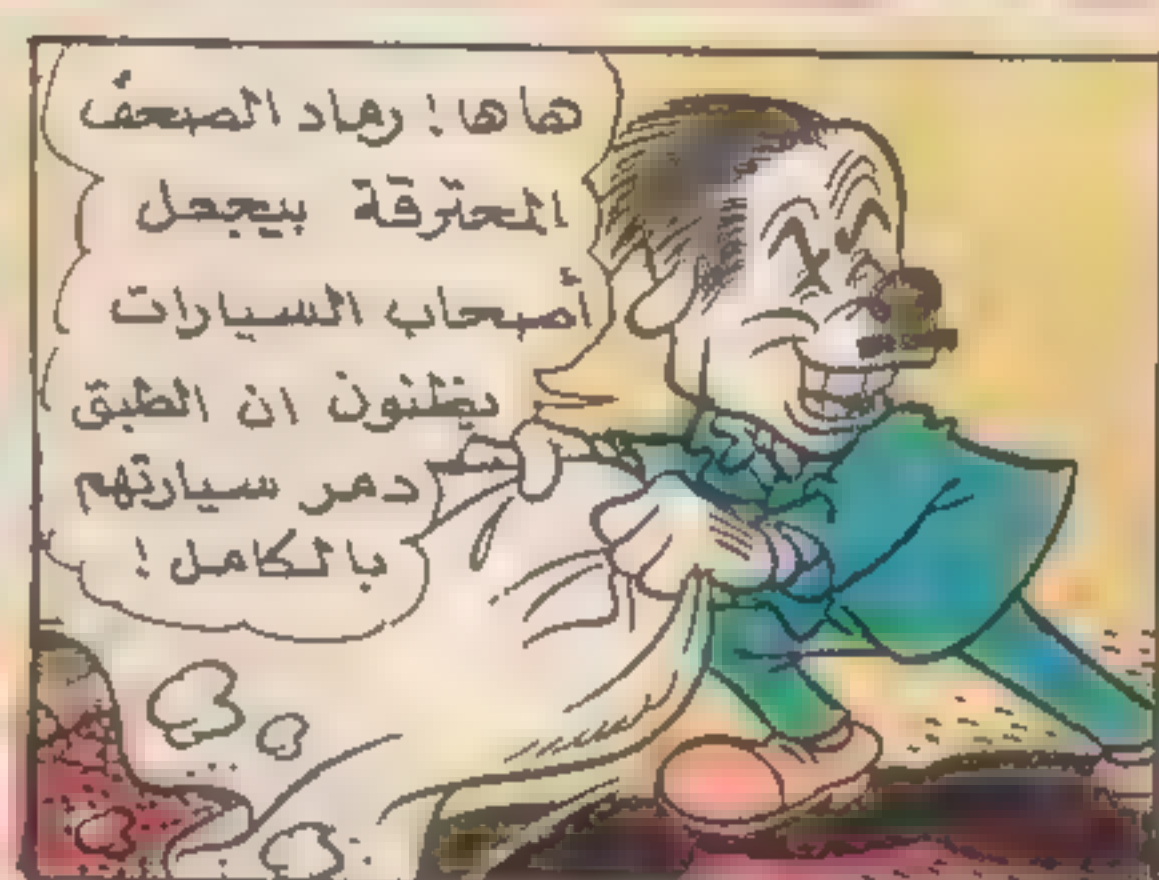 هاها! رماد الصحف
المحترقة بيجعل
أصحاب السيارات
يظنون ان الطبق
دمر سيارتهم
بالكامل!